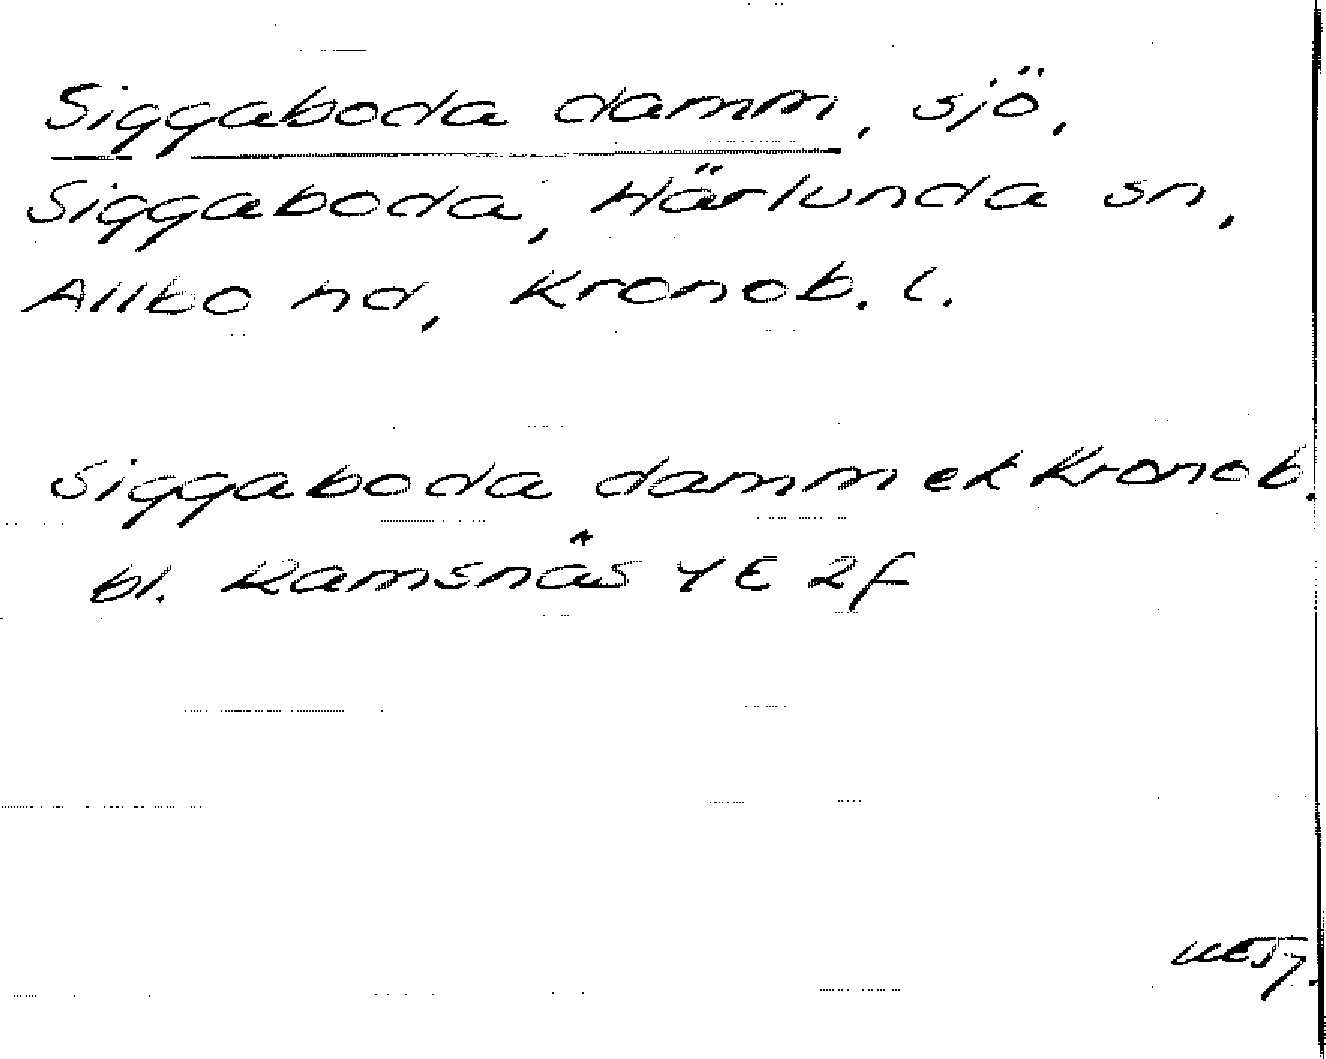 Siggaboda damm, sjö,
Siggaboda, Härlunda sn,
Allbo hd, Kronob. l.
Siggaboda damm ek Kronob.
bl. Ramsnäs 4 E 2 f